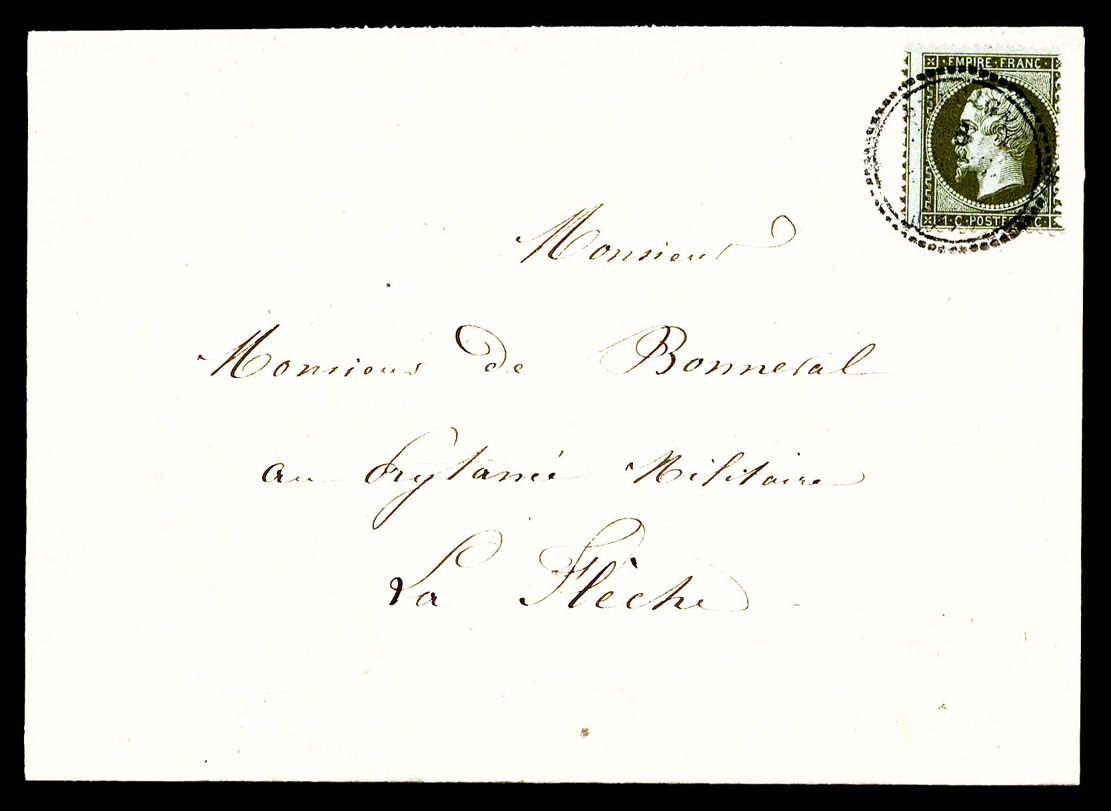 EMPIRE·FRANC·
1·C·POSTE C·
Monsieur
Monsieur de Bonneval
au Prytanée Militaire
La Flèche